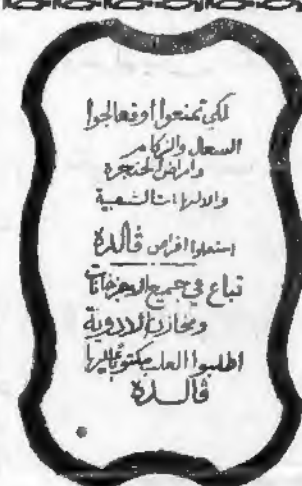 لكي تمنعوا أو تعالجوا
السعال والزكام
وامراض الحنجرة
والالتهابات الشعبية
استعملوا اقراص ڤالدة
تباع في جميع الاجزخانات
ومخازن الادوية
اطلبوا العلب مكتوبًا عليها
ڤالدة